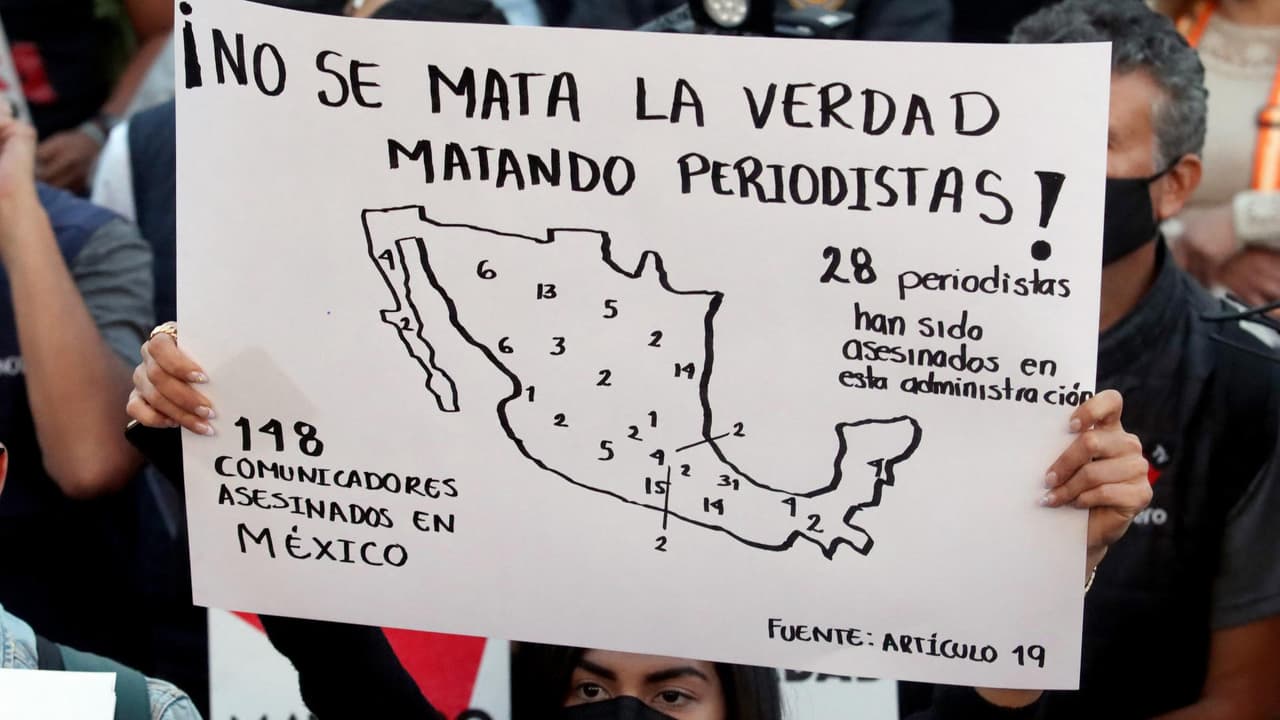 ¡NO SE MATA LA VERDAD
MATANDO PERIODISTAS!
28 periodistas
han sido
asesinados en
esta administración
148
COMUNICADORES
ASESINADOS EN
MÉXICO
4
6
13
5
2
6
3
2
14
2
1
2
1
2
2
5
4
2
15
31
14
4
2
4
2
FUENTE: ARTÍCULO 19